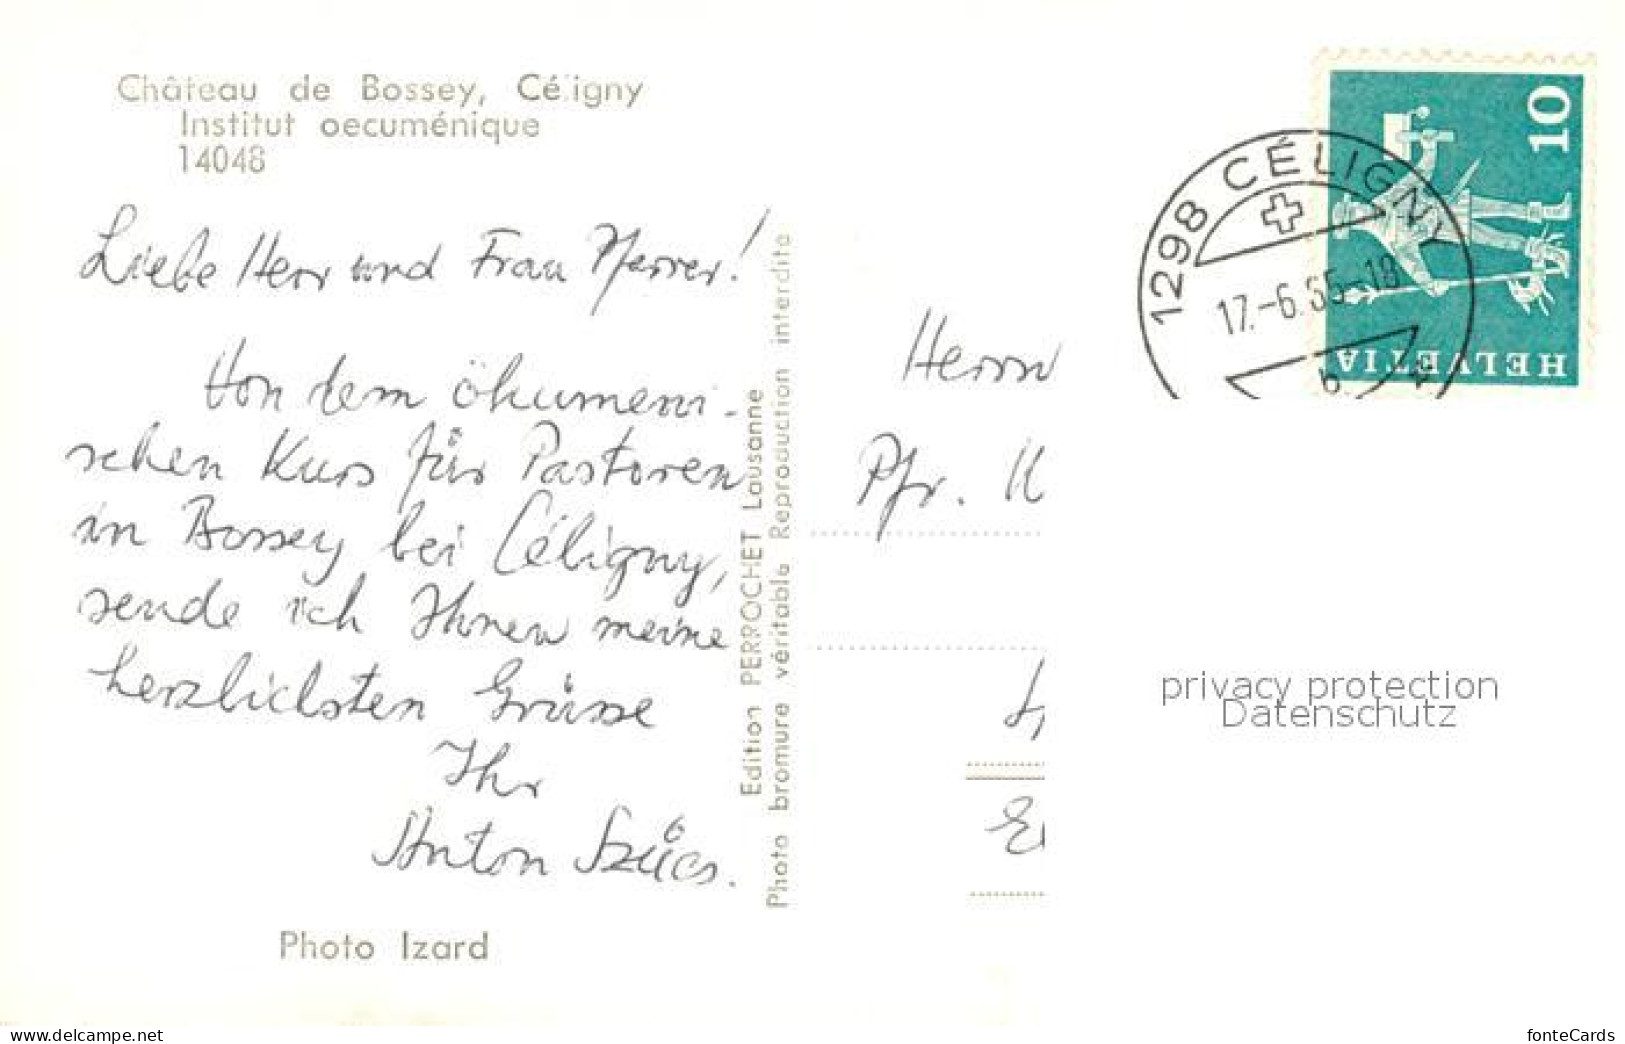 Château de Bossey, Céligny
Institut oecuménique
14048
Liebe Herr und Frau Pfarrer!
Von dem ökumeni-
schen Kurs für Pastoren
in Bossey bei Céligny,
sende ich Ihnen meine
herzlichsten Grüsse
Ihr
Anton Szücs.
Photo Izard
Edition PERROCHET Lausanne
Photo bromure véritable Reproduction interdite
1298 CÉLIGNY
17.-6.65-18
10
HELVETIA
Herrn
Pfr.
privacy protection
Datenschutz
www.delcampe.net
fonteCards